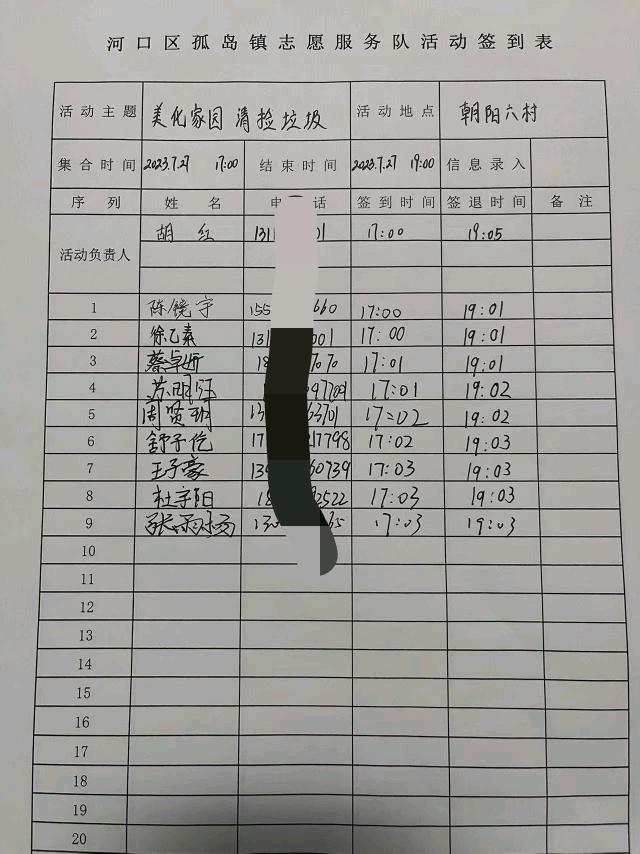 河口区孤岛镇志愿服务队活动签到表
活动主题 美化家园 清捡垃圾 活动地点 朝阳六村
集合时间 2023.7.27 17:00 结束时间 2023.7.27 19:00 信息录入
序列 姓名 电 话 签到时间 签退时间 备注
活动负责人 胡红 131 01 17:00 19:05
1 陈镜宇 155 660 17:00 19:01
2 徐乙素 131 001 17:00 19:01
3 蔡卓妍 18 7070 17:01 19:01
4 苏明 97709 17:01 19:02
5 周贤明 13 63701 17:02 19:02
6 舒子仡 17 17798 17:02 19:03
7 王子豪 139 60739 17:03 19:03
8 杜宇阳 18 2522 17:03 19:03
9 张雨 130 35 17:03 19:03
10
11
12
13
14
15
16
17
18
19
20